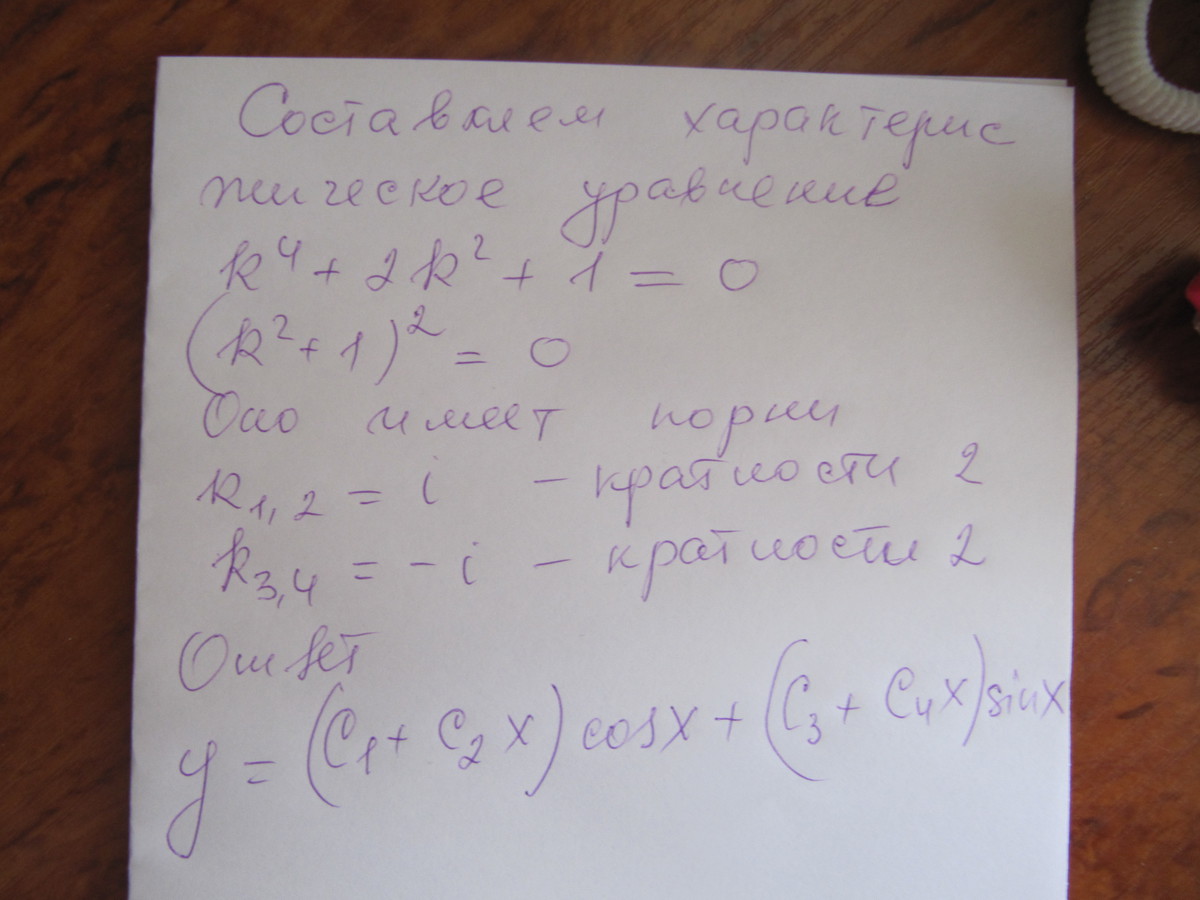 Составляем характерис
тическое уравнение
k⁴ + 2k² + 1 = 0
(k² + 1)² = 0
Оно имеет корни
k₁,₂ = i – кратности 2
k₃,₄ = - i – кратности 2
Ответ
y = (C₁ + C₂ x) cosx + (C₃ + C₄x) sinx